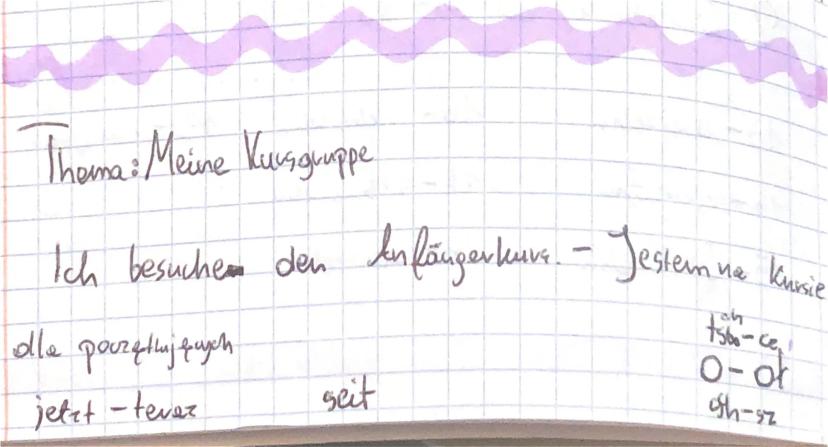 Thema: Meine Kursgruppe
Ich besuche den Anfängerkurs. - Jestem na kursie
dla początkujących
jetzt - teraz seit
O -